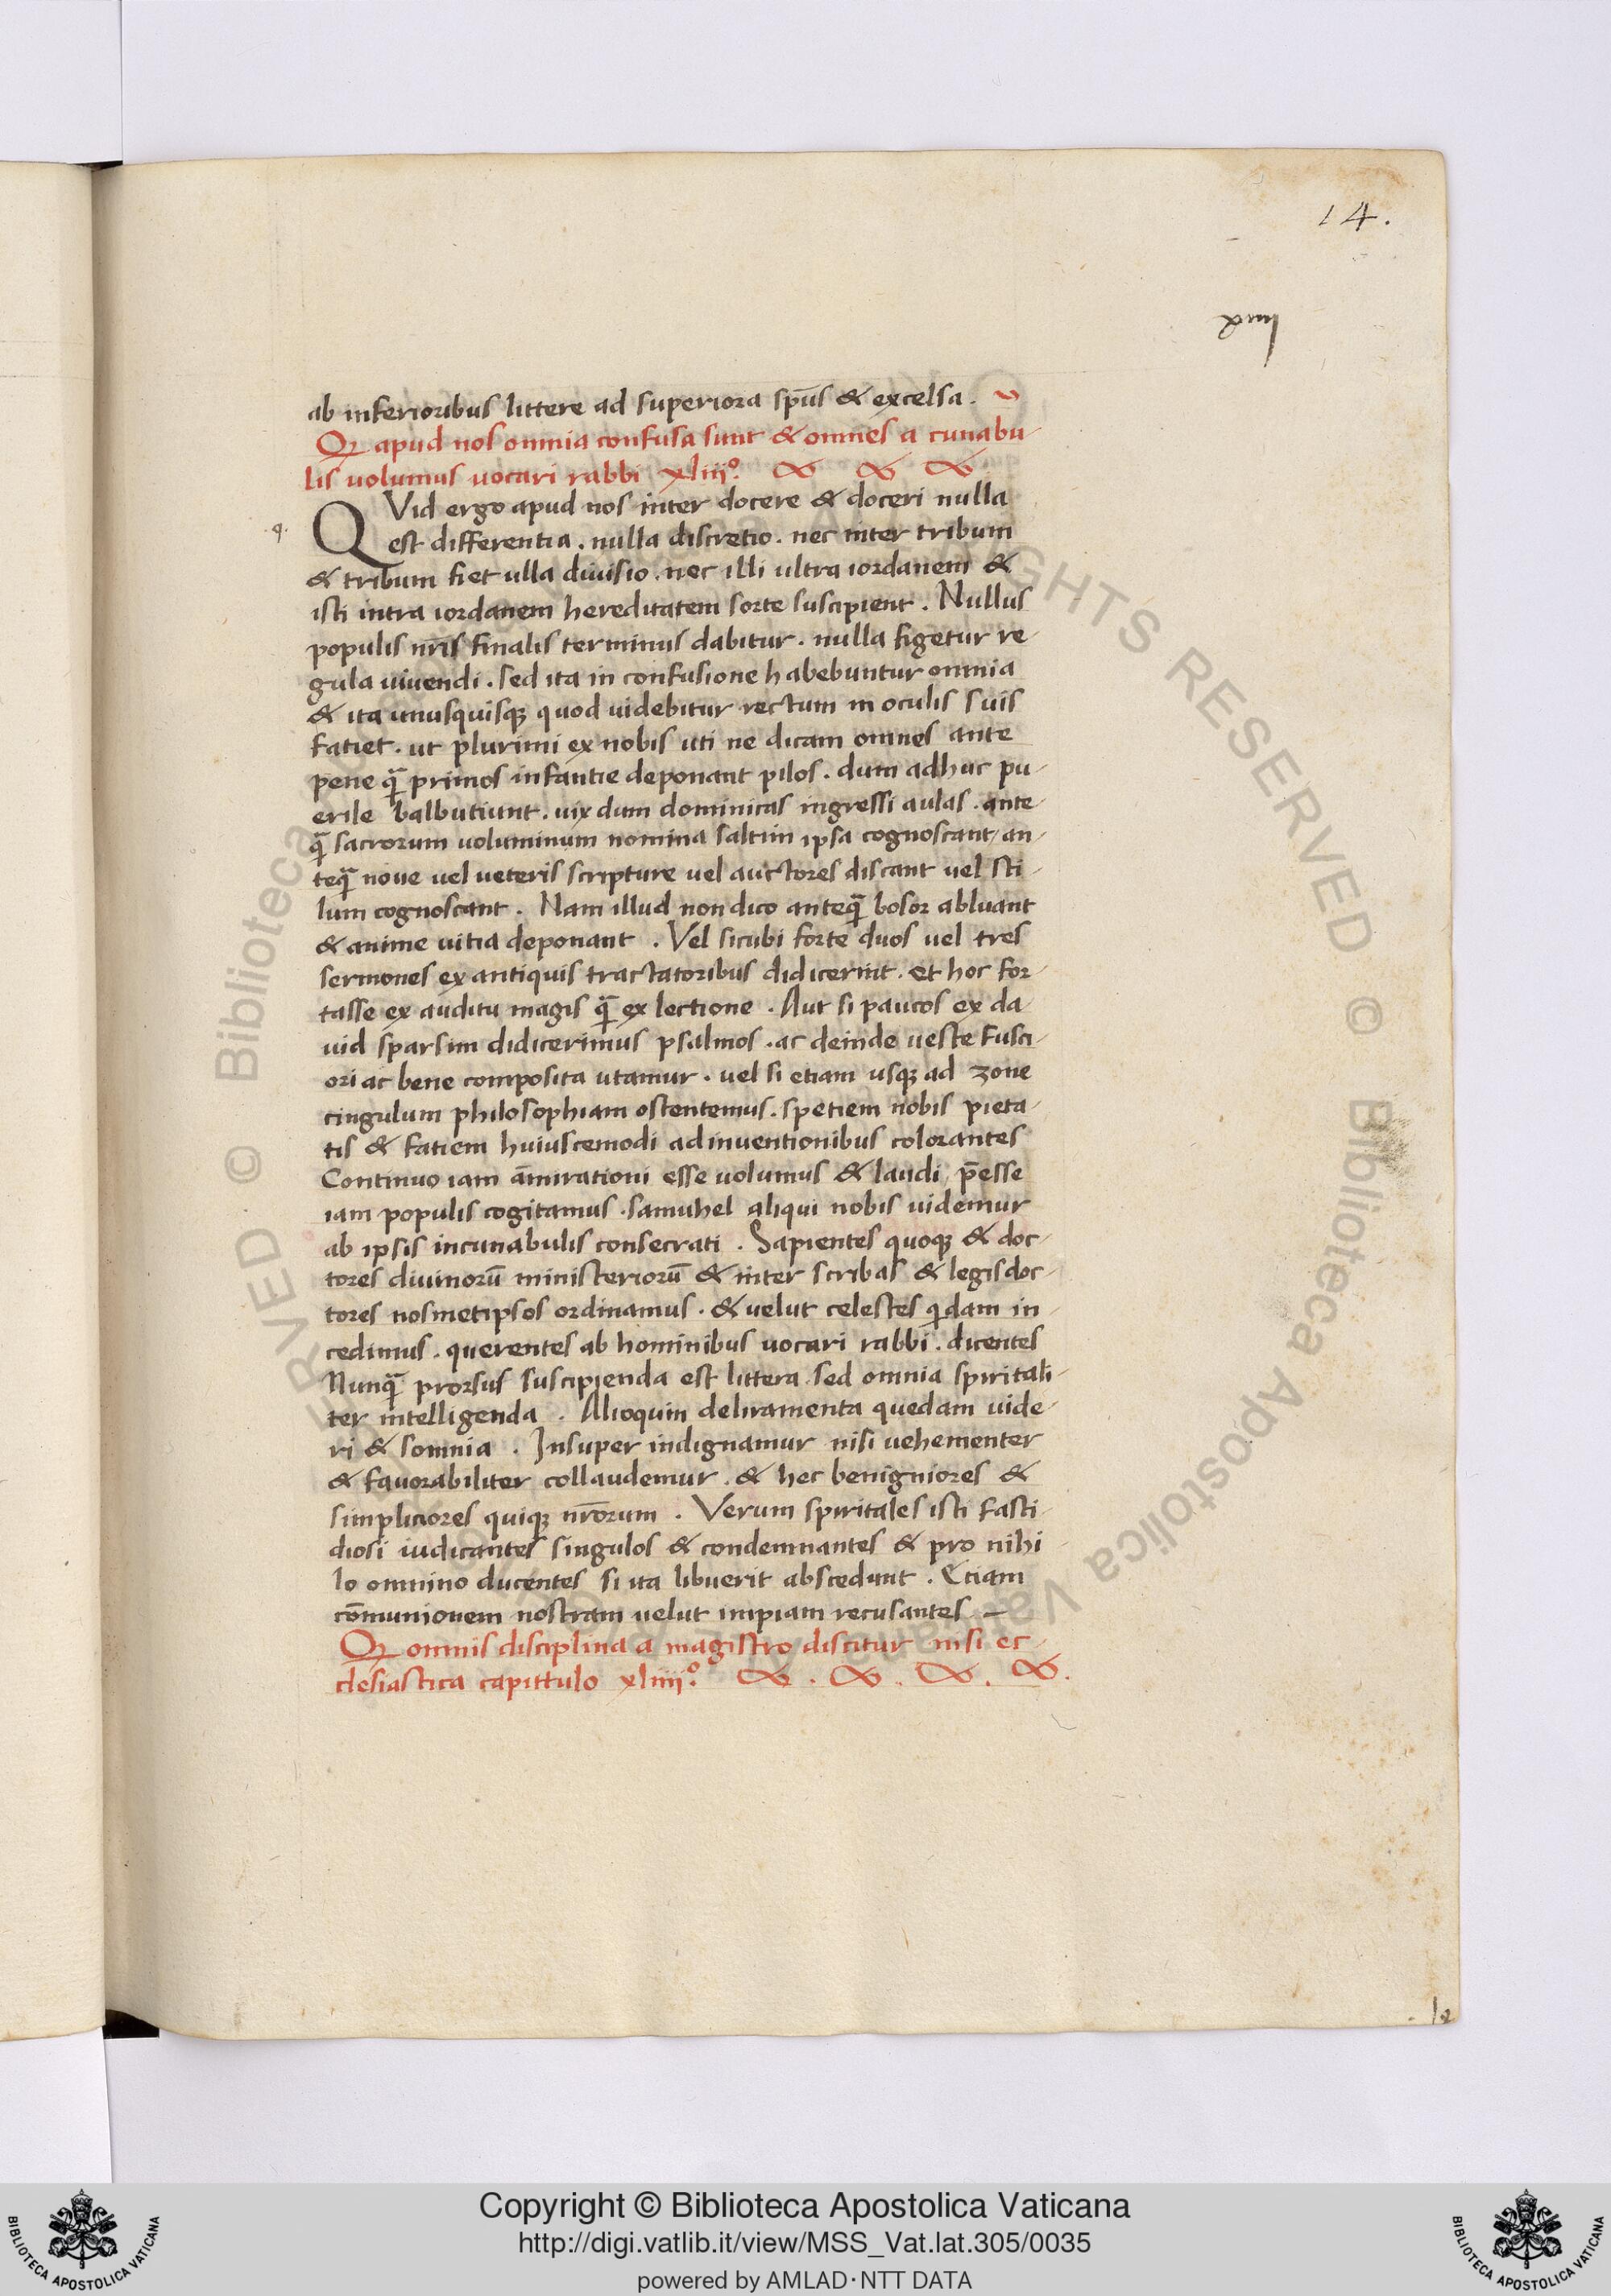 14.
xiiii
ab inferioribus littere ad superiora sp̄us & excelsa.
Qꝛ apud nos omnia confusa sunt & omnes a cunabu-
lis volumus uocari rabbi xliii°.
q.
QVid ergo apud nos inter docere & doceri nulla
est differentia. nulla discretio. nec inter tribum
& tribum fiet ulla diuisio. nec illi ultra iordanem &
isti intra iordanem hereditatem sorte suscipient. Nullus
populis nr̄is finalis terminus dabitur. nulla figetur re-
gula uiuendi. sed ita in confusione habebuntur omnia
& ita unusquisqꝫ quod uidebitur rectum in oculis suis
fatiet. ut plurimi ex nobis uti ne dicam omnes ante
pene qꝫ̄ primos infantie deponant pilos. dum adhuc pu-
erile balbutiunt. uix dum dominicas ingressi aulas. ante-
q̄ sacrorum uoluminum nomina saltim ipsa cognoscant, an-
teq̄ noue uel ueteris scripture uel auctores discant uel sti-
lum cognoscant. Nam illud non dico anteq̄ bosor abluant
& anime uitia deponant. Vel sicubi forte duos uel tres
sermones ex antiquis tractatoribus didicerint. et hoc for-
tasse ex auditu magis q̄ ex lectione. Aut si paucos ex da-
uid sparsim didicerimus psalmos. ac deinde ueste fusci-
ori ac bene composita utamur. uel si etiam usqꝫ ad zone
cingulum philosophiam ostentemus. spetiem nobis pieta-
tis & fatiem huiuscemodi adinuentionibus colorantes
Continuo iam am̄irationi esse uolumus & laudi, p̄esse
iam populis cogitamus. samuhel aliqui nobis uidemur
ab ipsis incunabulis consecrati. Sapientes quoqꝫ & doc-
tores diuinorū ministeriorū & inter scribas & legisdoc-
tores nosmetipsos ordinamus. & uelut celestes qͥdam in-
cedimus. querentes ab hominibus uocari rabbi. dicentes
Nunq̄ prorsus suscipienda est littera sed omnia spiritali-
ter intelligenda. Alioquin deliramenta quedam uide-
ri & somnia. Insuper indignamur nisi uehementer
& fauorabiliter collaudemur. & hec benigniores &
simpliciores quiqꝫ nr̄orum. Verum spiritales isti fasti-
diosi iudicantes singulos & condemnantes & pro nihi
lo omnino ducentes si ita libuerit abscedunt. Etiam
com̄unionem nostram uelut impiam recusantes
Qꝛ omnis disciplina a magistro discitur nisi ec-
clesiastica capittulo xliiii°.
Copyright © Biblioteca Apostolica Vaticana
http://digi.vatlib.it/view/MSS_Vat.lat.305/0035
powered by AMLAD·NTT DATA
BIBLIOTECA APOSTOLICA VATICANA
BIBLIOTECA APOSTOLICA VATICANA